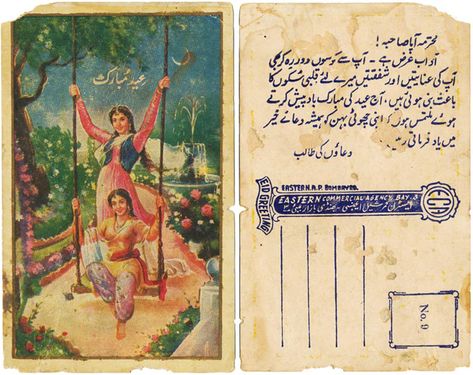 عید مُبارک
محترمہ آپا صاحبہ!
آداب عرض ہے۔ آپ سے کوسوں دور رہ کر بھی
آپ کی عنایتیں اور شفقتیں میرے لئے قلبی سُکوں کا
باعث بنی ہوئی ہیں۔ آج عید کی مبارک باد پیش کرتے
ہوئے ملتمس ہوں کہ اپنی چھوٹی بہن کو ہمیشہ دعائے خیر
میں یاد فرماتی رہیں۔
دعاؤں کی طالب
EASTERN. A. P. BOMBAY 03.
EASTERN COMMERCIAL AGENCY BAY. 3
ایسٹرن کمرشیل ایجنسی۔ بھنڈی بازار بمبئی ۳
ECA
EID GREETING
No. 9